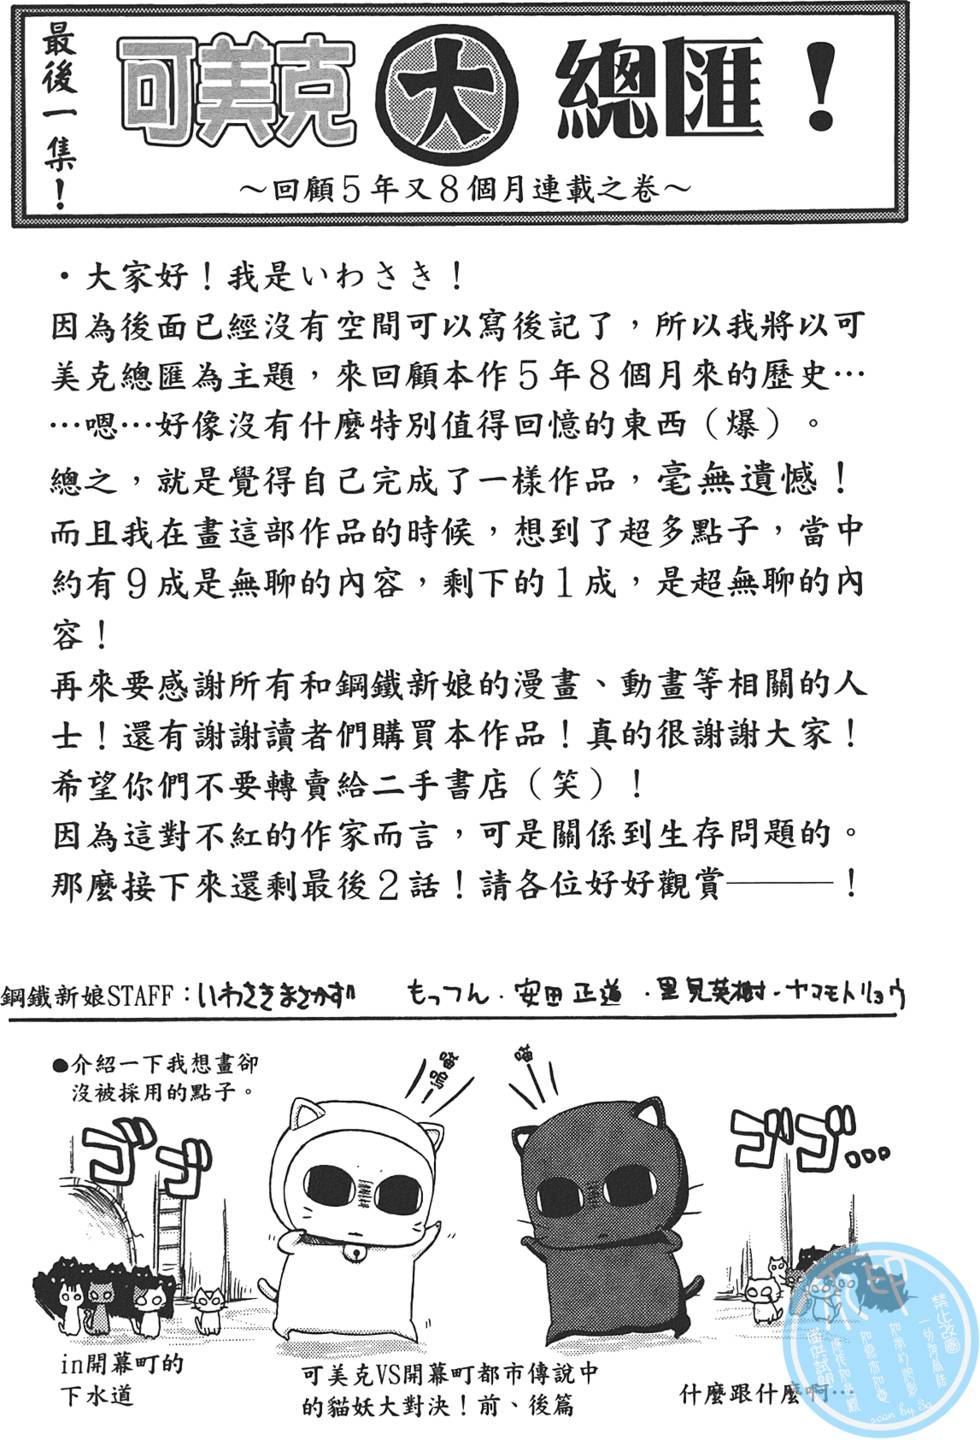 最後一集！
可美克大總匯！
～回顧５年又８個月連載之卷～
・大家好！我是いわさき！
因為後面已經沒有空間可以寫後記了，所以我將以可
美克總匯為主題，來回顧本作５年８個月來的歷史…
…嗯…好像沒有什麼特別值得回憶的東西（爆）。
總之，就是覺得自己完成了一樣作品，毫無遺憾！
而且我在畫這部作品的時候，想到了超多點子，當中
約有９成是無聊的內容，剩下的１成，是超無聊的內
容！
再來要感謝所有和鋼鐵新娘的漫畫、動畫等相關的人
士！還有謝謝讀者們購買本作品！真的很謝謝大家！
希望你們不要轉賣給二手書店（笑）！
因為這對不紅的作家而言，可是關係到生存問題的。
那麼接下來還剩最後２話！請各位好好觀賞———！
鋼鐵新娘STAFF：いわさきまさかず もっつん．安田正道．里見英樹．ヤマモトリョウ
●介紹一下我想畫卻
沒被採用的點子。
喵
喵
ゴゴ
ゴゴ…
in開幕町的
下水道
可美克VS開幕町都市傳說中
的貓妖大對決！前、後篇
什麼跟什麼啊…
scan by